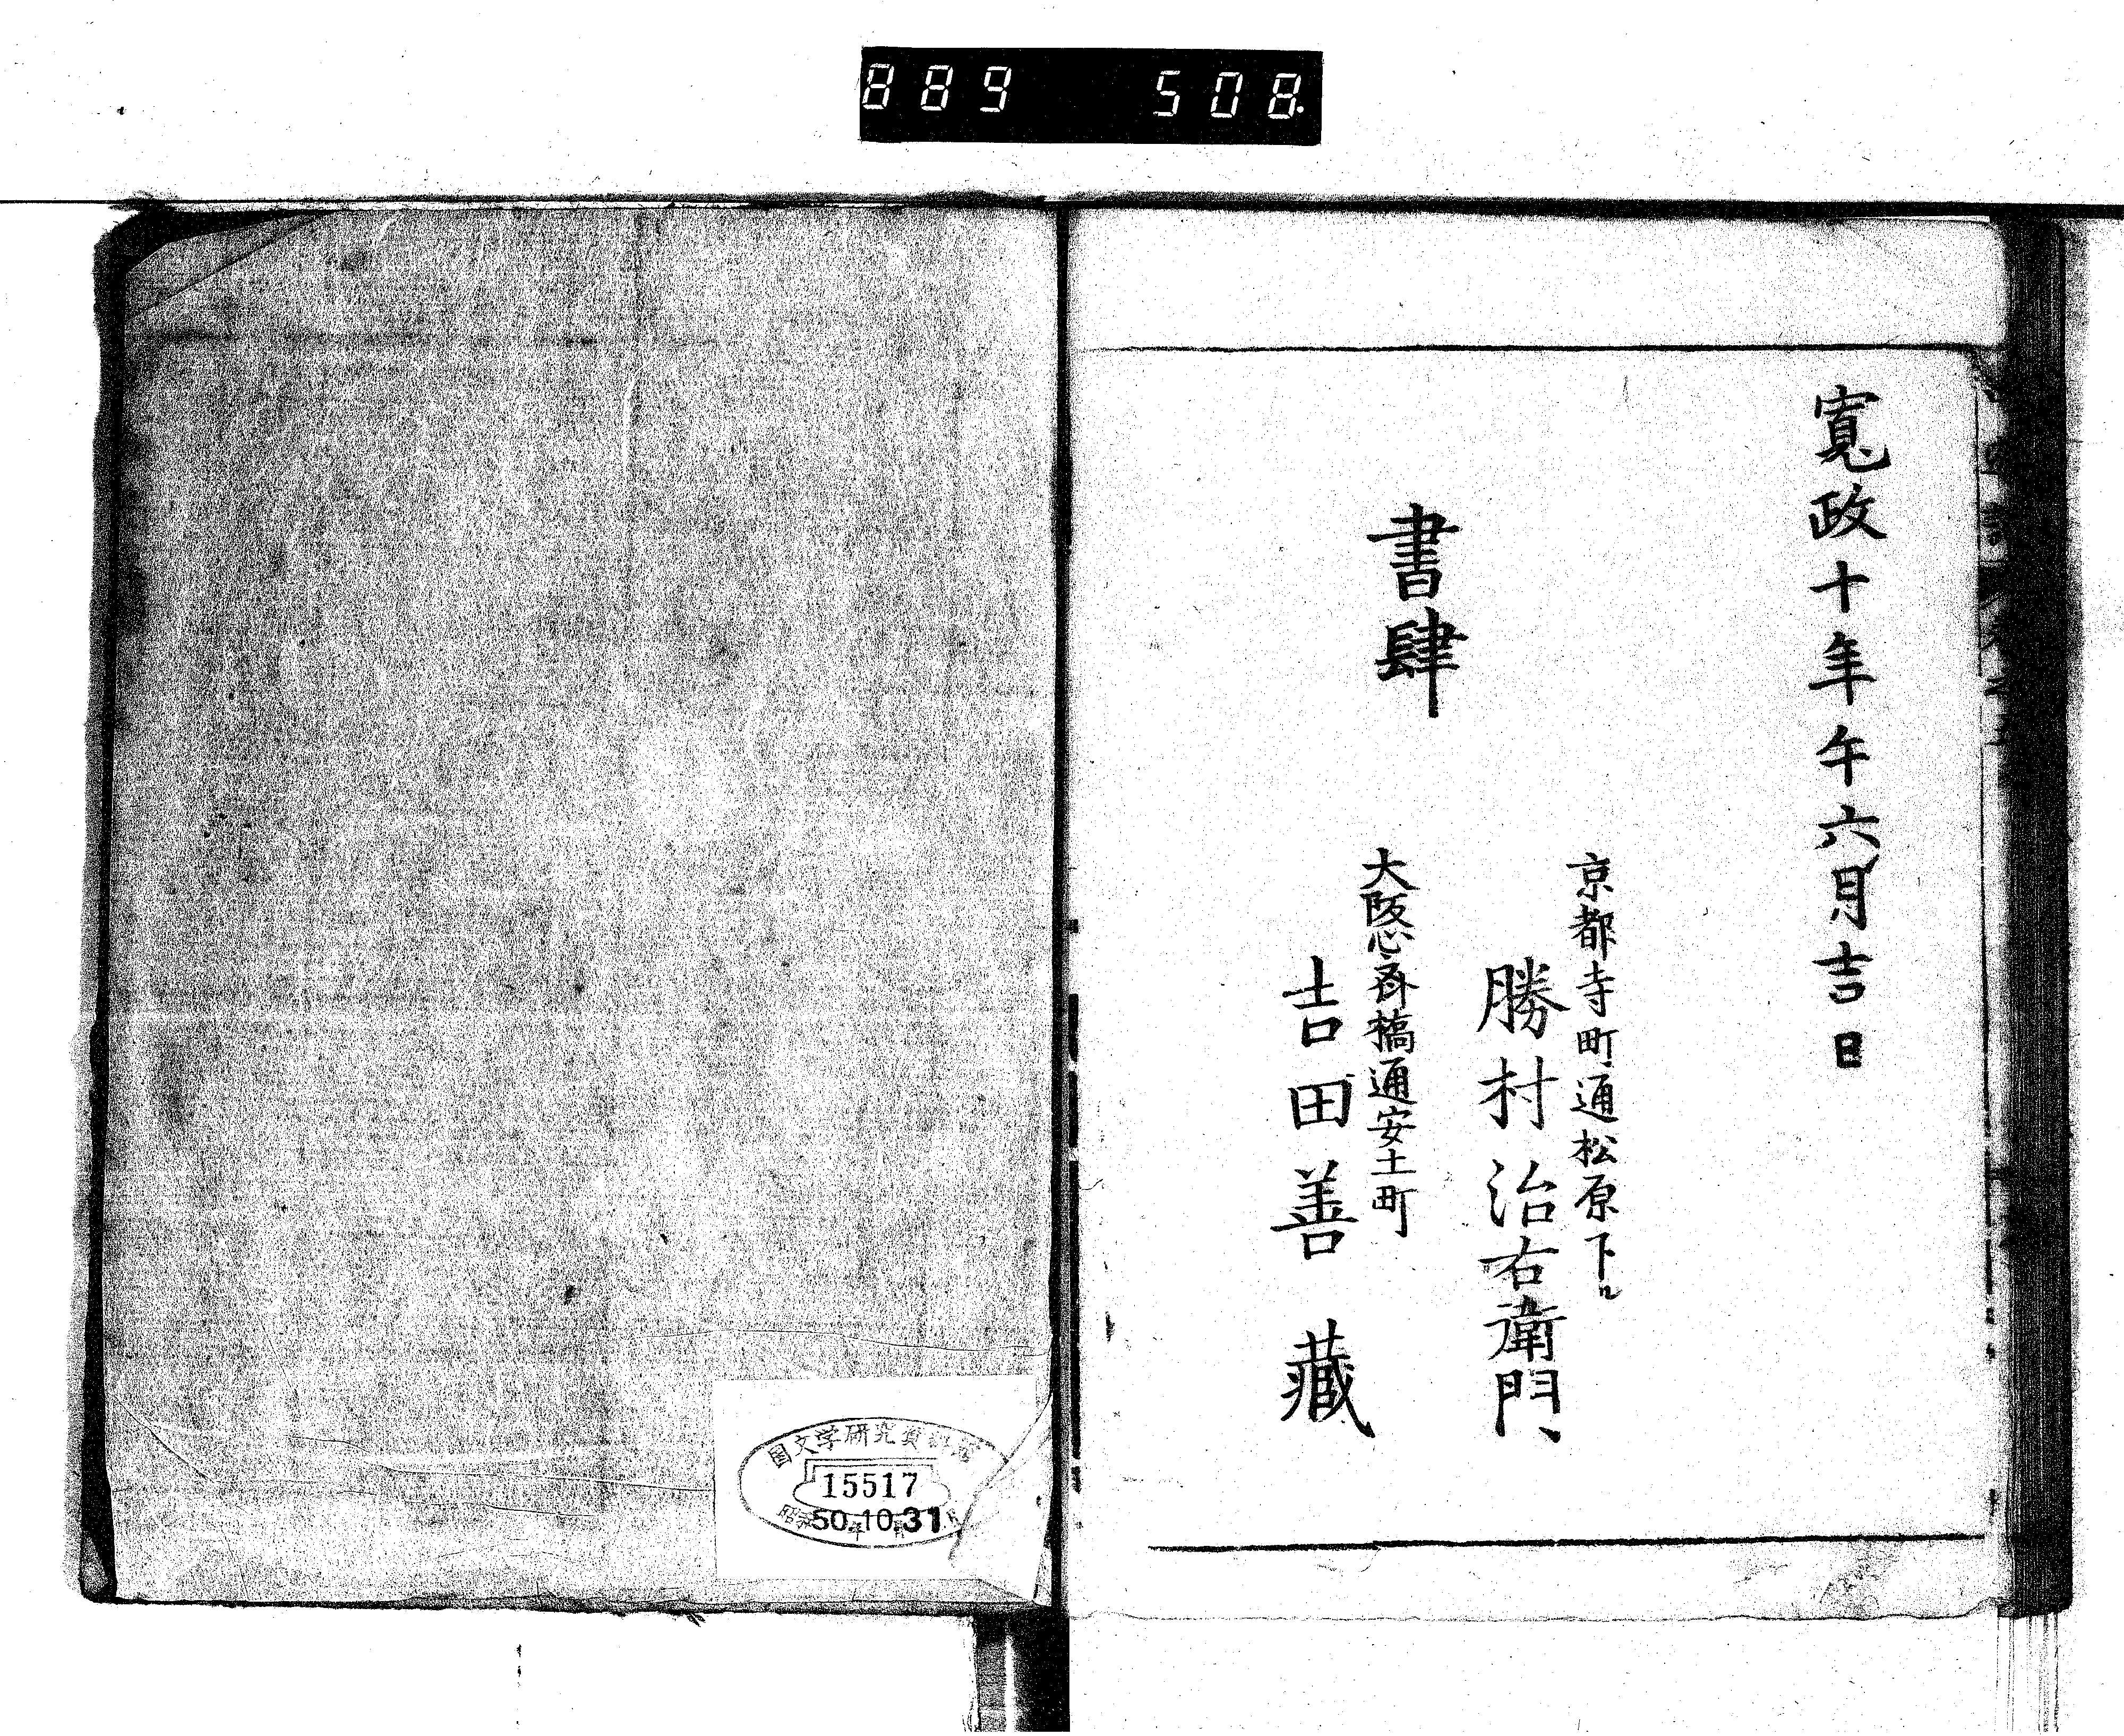 889 508
寛政十年午六月吉日
京都寺町通松原下ル
勝村治右衛門
書肆
大阪心斎橋通安土町
吉田善蔵
国文学研究資料館
15517
昭和50年10月31日